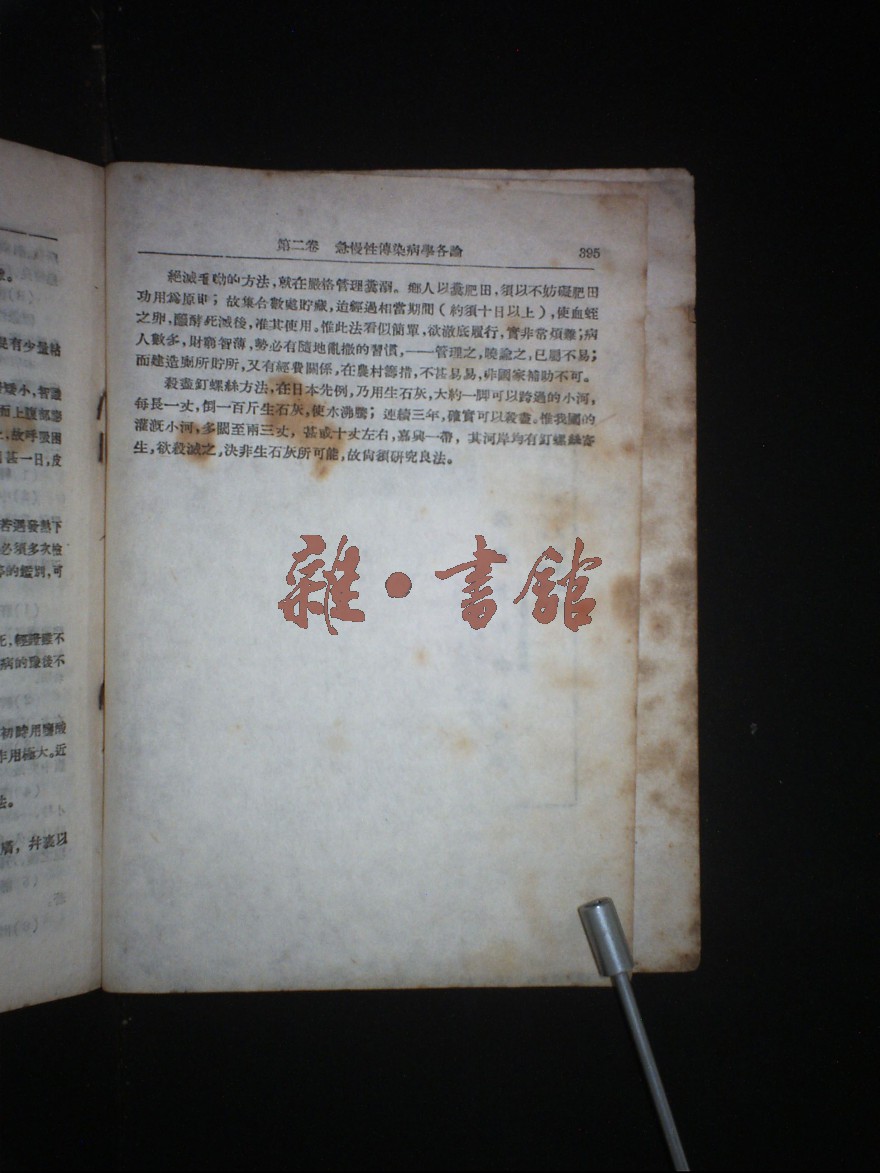 量。
是有少量粘
矮小,智識
而上腹部膨
上,故呼吸困
甚一日,皮
若遇發熱下
必須多次檢
的鑑別,可
死,輕證雖不
病的豫後不
初時用鹽酸
作用極大。近
法。
廣,幷裏以
第二卷 急慢性傳染病學各論 395
絕滅毛蚴的方法,就在嚴格管理糞溺。鄉人以糞肥田,須以不妨礙肥田
功用爲原則;故集合數處貯藏,迨經過相當期間(約須十日以上),使血蛭
之卵,醱酵死滅後,准其使用。惟此法看似簡單,欲澈底履行,實非常煩難;病
人數多,財窮智薄,勢必有隨地亂撒的習慣,——管理之,曉諭之,已屬不易;
而建造厠所貯所,又有經費關係,在農村籌措,不甚易易,非國家補助不可。
殺盡釘螺絲方法,在日本先例,乃用生石灰,大約一脚可以跨過的小河,
每長一丈,倒一百斤生石灰,使水沸騰;連續三年,確實可以殺盡。惟我國的
灌漑小河,多闊至兩三丈,甚或十丈左右,嘉興一帶,其河岸均有釘螺絲寄
生,欲殺滅之,決非生石灰所可能,故尙須研究良法。
雜·書館